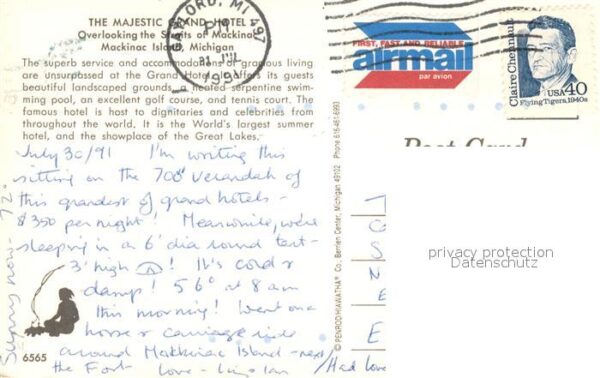 THE MAJESTIC GRAND HOTEL
Overlooking the Straits of Mackinac
Mackinac Island, Michigan
The superb service and accommodations of gracious living
are unsurpassed at the Grand Hotel. It offers its guests
beautiful landscaped grounds, a heated serpentine swim-
ming pool, an excellent golf course, and tennis court. The
famous hotel is host to dignitaries and celebrities from
throughout the World. It is the World's largest summer
hotel, and the showplace of the Great Lakes.
GAYLORD, MI 497
PM
31 JUL
1991
FIRST, FAST AND RELIABLE
airmail
par avion
Claire Chennault
USA 40
Flying Tigers, 1940s
Post Card
July 30/91 I'm writing this
sitting on the 700' verandah of
this grandest of grand hotels -
$350 per night! Meanwhile, we're
sleeping in a 6' dia round tent -
3' high! It's cold &
damp! 56° at 8 am
this morning! Went on a
horse & carriage ride
around Mackinac Island - next
the Fort Love -
Had Love
Sunny now - 72°
6565
© PENROD/HIAWATHA® Co., Berrien Center, Michigan 49102 Phone 616-461-6993
privacy protection
Datenschutz